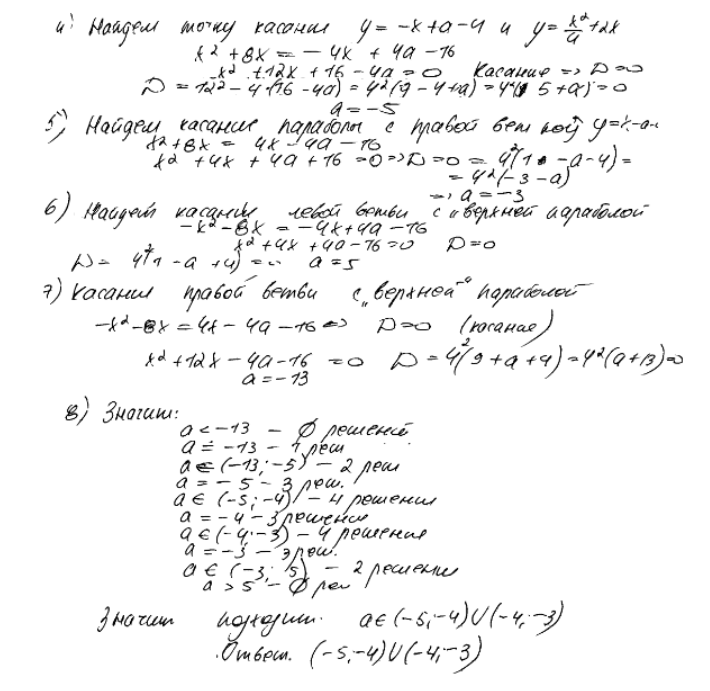 4) Найдем точку касания y = -x+a-4 и y = x²/4 +2x
x² + 8x = -4x + 4a -16
x² + 12x + 16 - 4a = 0 Касание => D=0
D = 12² - 4·(16 - 4a) = 4²(9 - 4+a) = 4²(5+a) = 0
a = -5
5) Найдем касание параболы с правой веткой y=x-a-
x²+8x = 4x - 4a - 16
x² + 4x + 4a + 16 = 0 => D=0 = 4²(1 - a - 4) =
= 4²(-3 - a)
=> a = -3
6) Найдем касания левой ветви с "верхней параболой
-x² - 8x = -4x+4a-16
x² + 4x + 4a - 16 = 0 D=0
D = 4²(1 - a + 4) = a = 5
7) Касания правой ветви с "верхней" параболой
-x² - 8x = 4x - 4a - 16 => D=0 (касание)
x² + 12x - 4a - 16 = 0 D = 4²(9 + a + 4) = 4²(a+13)=0
a = -13
8) Значит:
a < -13 - Ø решений
a = -13 - 1 реш
a ∈ (-13; -5) - 2 реш
a = -5 - 3 реш.
a ∈ (-5; -4) - 4 решения
a = -4 - 3 решения
a ∈ (-4; -3) - 4 решения
a = -3 - 3 реш.
a ∈ (-3; 5) - 2 решения
a > 5 - Ø реш
Значит подходит a ∈ (-5; -4) ∪ (-4; -3)
Ответ. (-5; -4) ∪ (-4; -3)